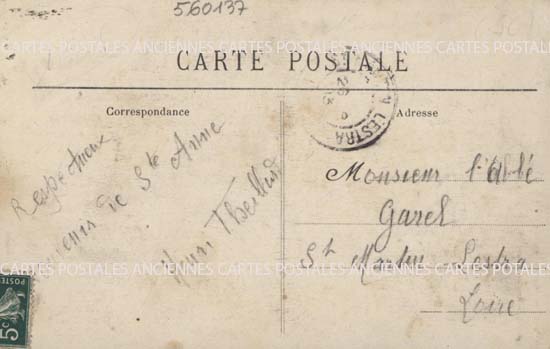 560137
CARTES POSTALES ANCIENNES CARTES POSTALES ANCIENNES CARTES POSTALES
CARTE POSTALE
Correspondance
Adresse
LESTRA
Respectueux
de Ste Anne
Henri
Monsieur l'abbé
Garel
St Martin Lestra
Loire
CARTES POSTALES ANCIENNES CARTES POSTALES ANCIENNES CARTES POSTALES
5c